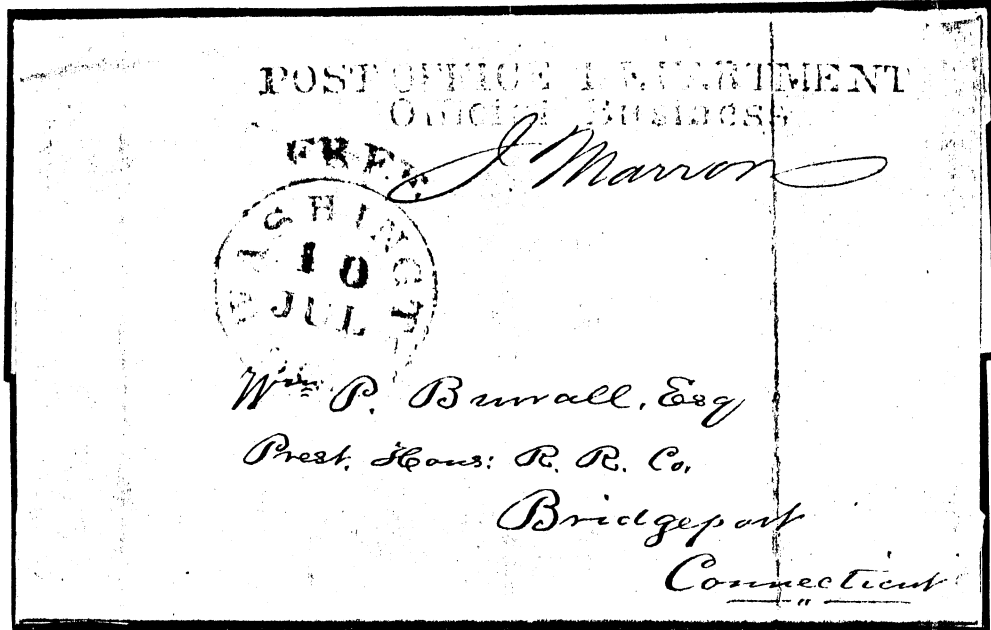 POST OFFICE DEPARTMENT
Official Business
J Marron
FREE
WASHINGT
10
JUL
Wm P. Burrall, Esq
Prest. Hous: R. R. Co.
Bridgeport
Connecticut